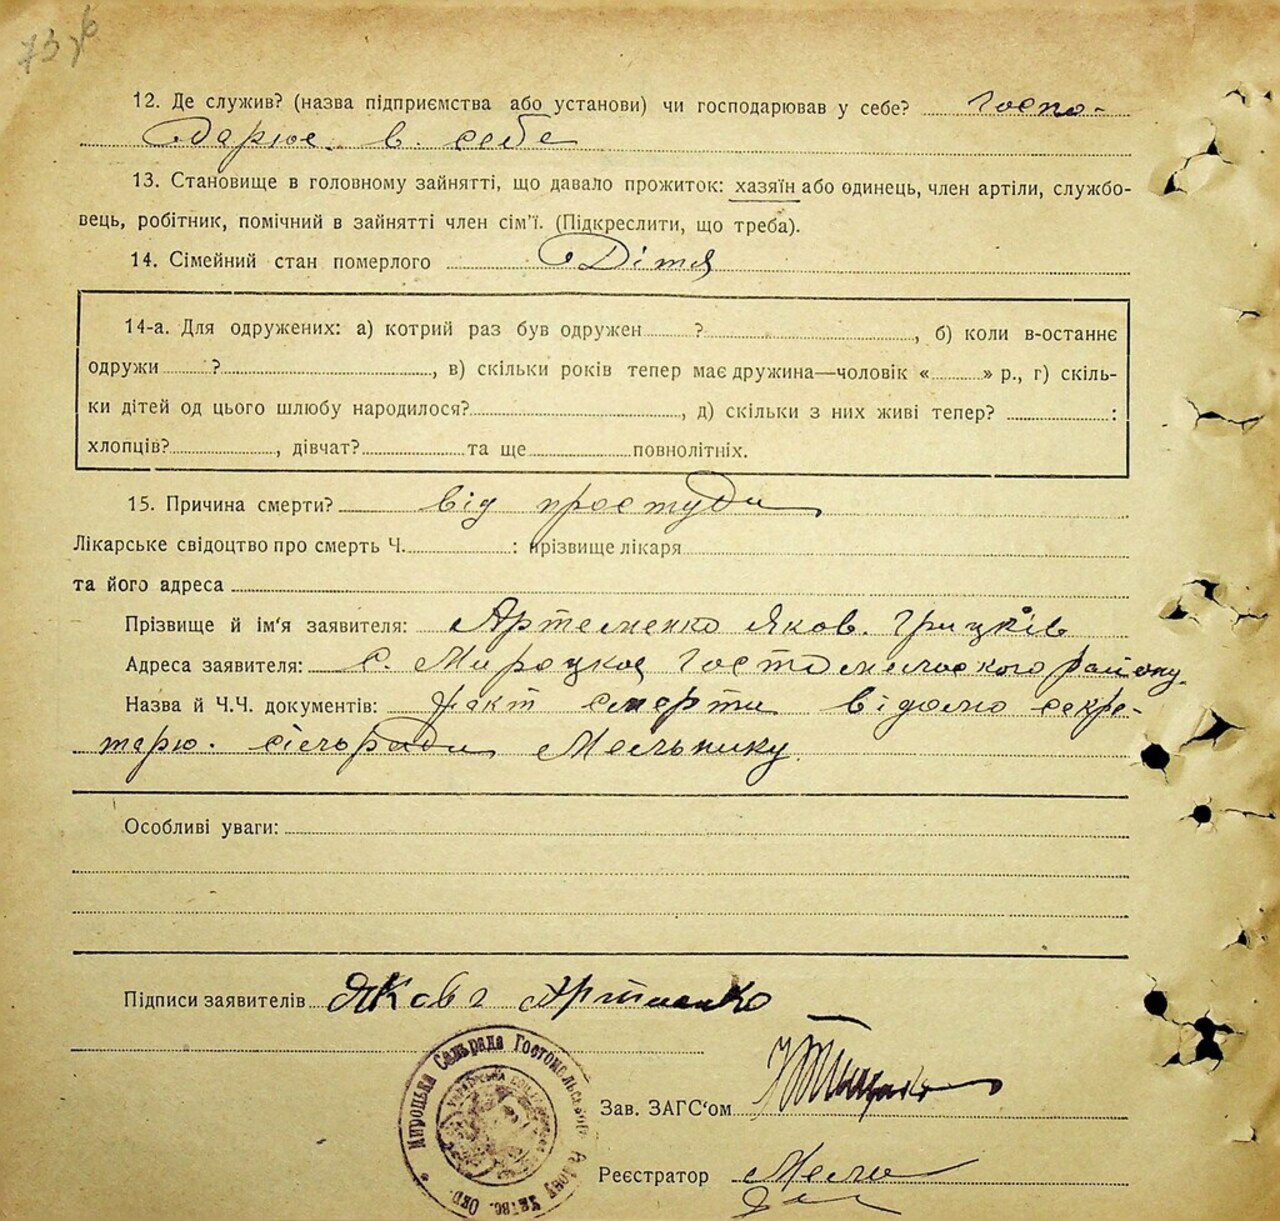 73
12. Де служив? (назва підприємства або установи) чи господарював у себе? Госпо-
дарює в себе
13. Становище в головному зайнятті, що давало прожиток: хазяїн або одинець, член артіли, службо-
вець, робітник, помічний в зайнятті член сім'ї. (Підкреслити, що треба).
14. Сімейний стан померлого Дітя
14-а. Для одружених: а) котрий раз був одружен ? , б) коли в-останнє
одружи ? , в) скільки років тепер має дружина—чоловік « » р., г) скіль-
ки дітей од цього шлюбу народилося? , д) скільки з них живі тепер? :
хлопців? , дівчат? та ще повнолітніх.
15. Причина смерти? від простуди
Лікарське свідоцтво про смерть Ч. : прізвище лікаря
та його адреса
Прізвище й ім'я заявителя: Артеменко Яков. Грицків
Адреса заявителя: с. Мироцкоє Гостомельского району
Назва й Ч.Ч. документів: факт смерти відомо секре-
тарю. сільради Мельнику.
Особливі уваги:
Підписи заявителів Яков Артменко
Мироцька Сельрада Гостомельського Району
Зав. ЗАГС'ом
Реєстратор Мель